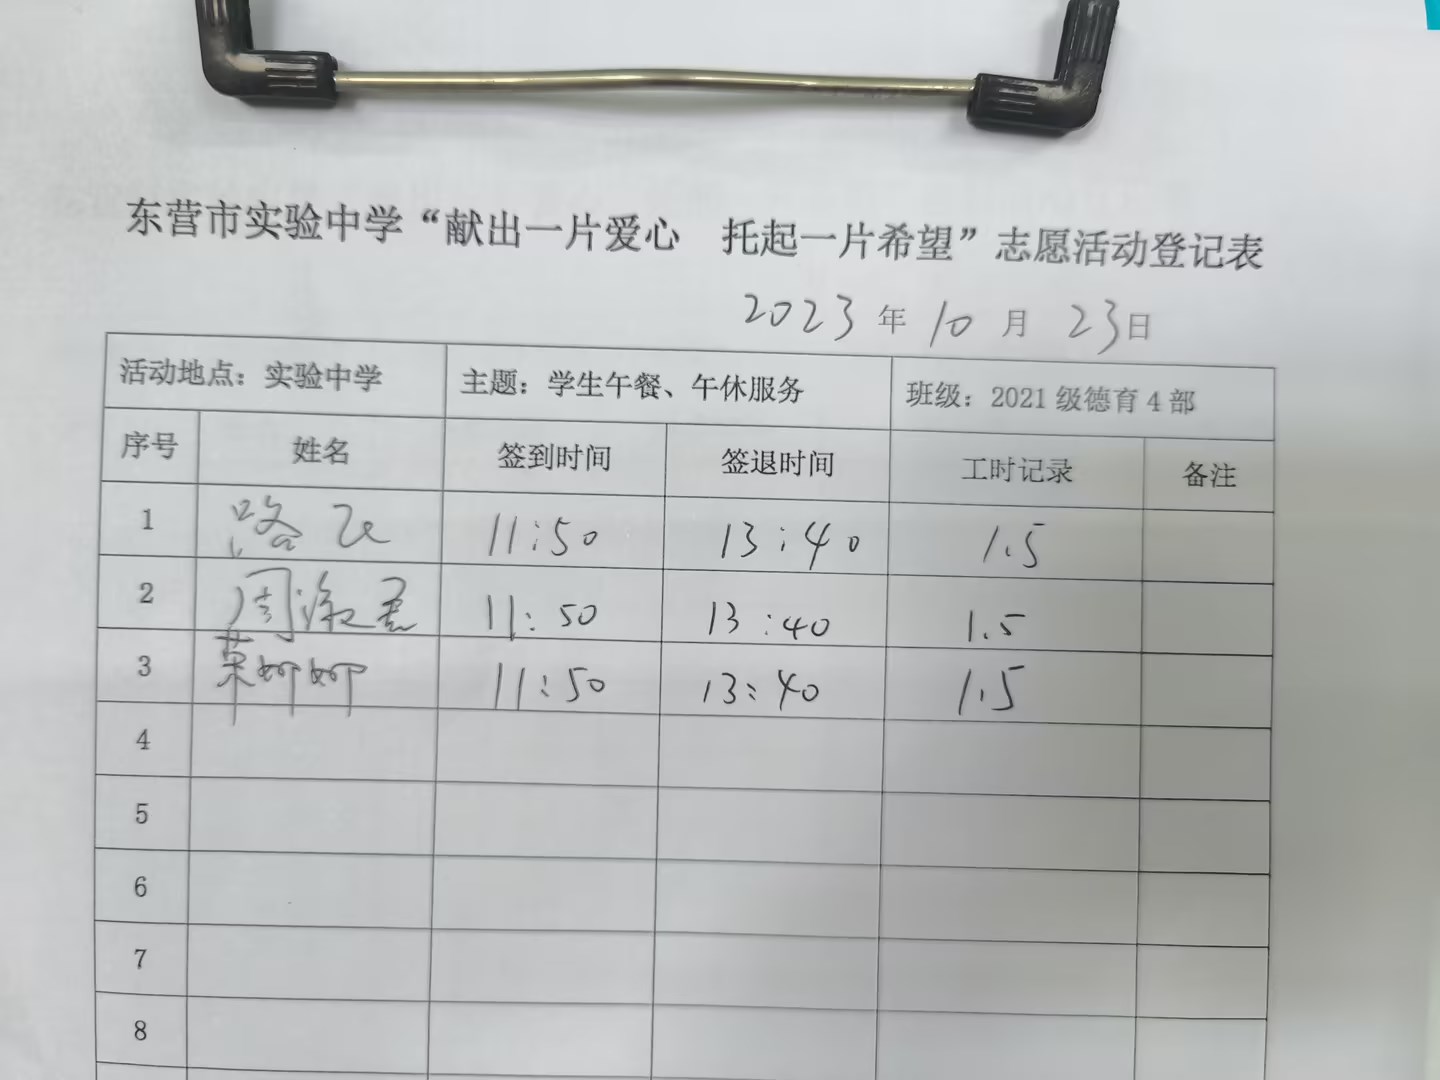 东营市实验中学“献出一片爱心 托起一片希望”志愿活动登记表
2023年10月23日
活动地点：实验中学 主题：学生午餐、午休服务 班级：2021级德育4部
序号 姓名 签到时间 签退时间 工时记录 备注
1 路飞 11:50 13:40 1.5
2 周 11:50 13:40 1.5
3 11:50 13:40 1.5
4
5
6
7
8